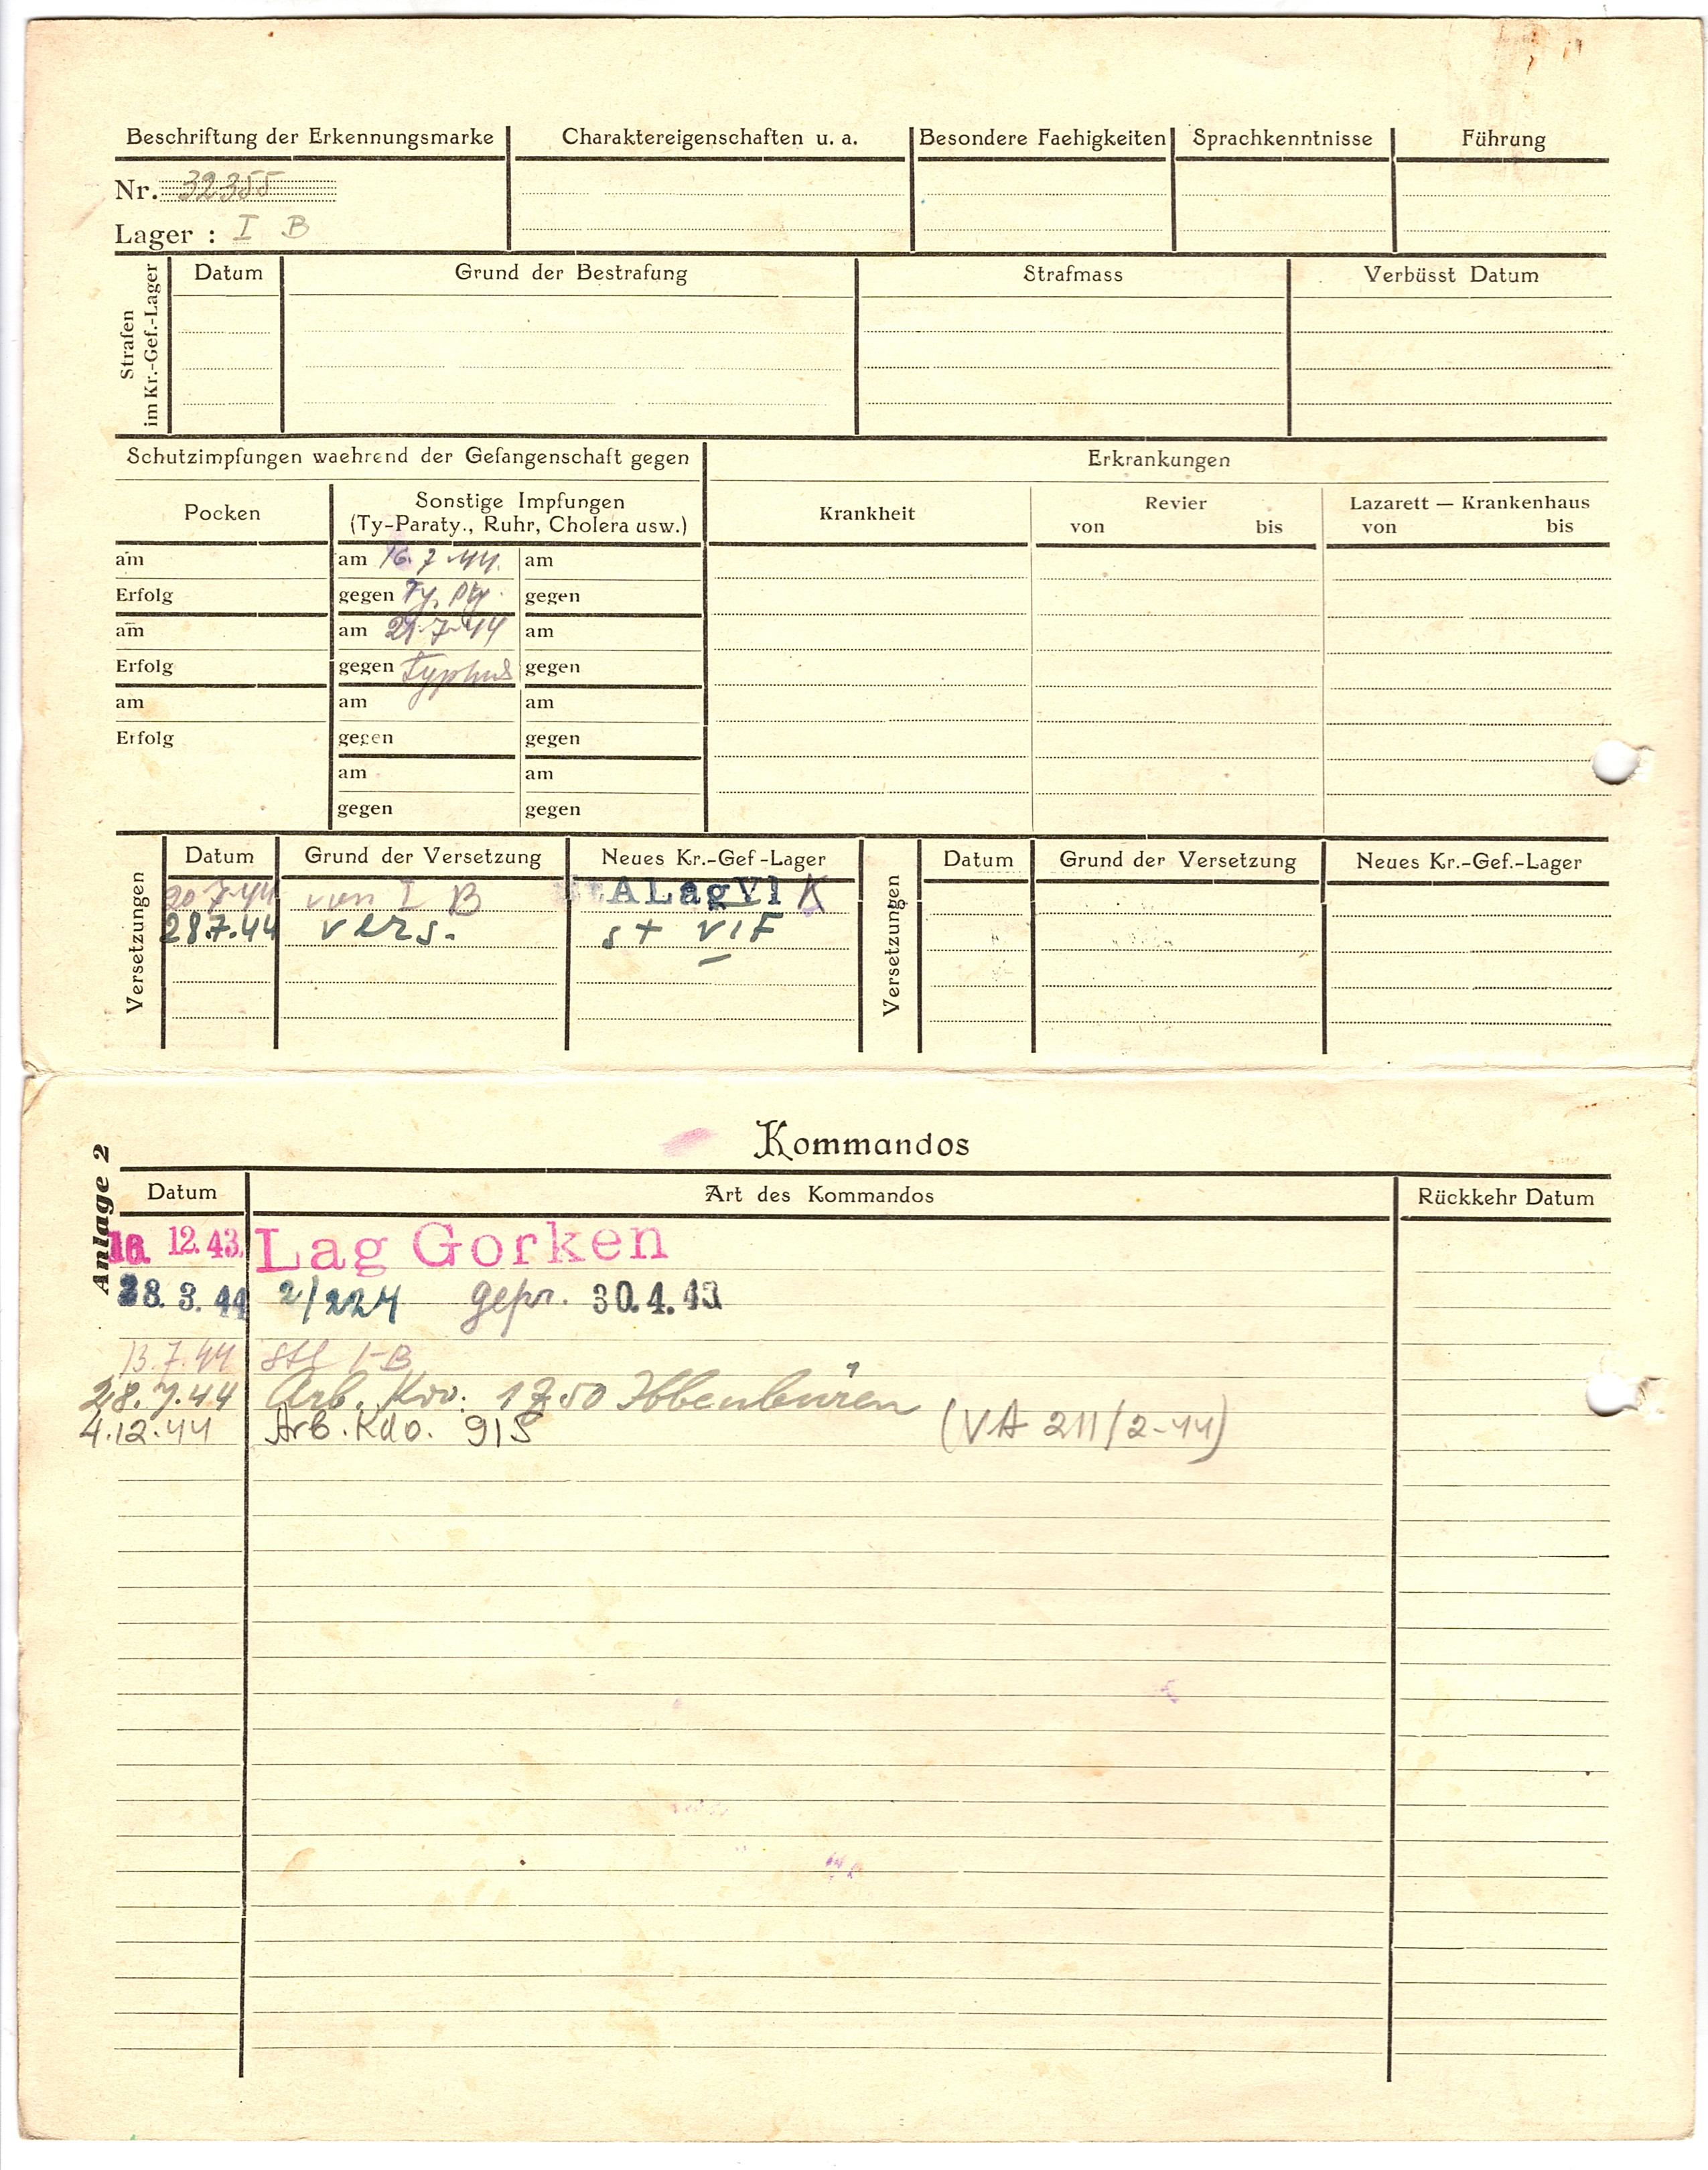 Beschriftung der Erkennungsmarke Charaktereigenschaften u. a. Besondere Faehigkeiten Sprachkenntnisse Führung
Nr. 32355
Lager : I B
Strafen im Kr.-Gef.-Lager
Datum Grund der Bestrafung Strafmass Verbüsst Datum
Schutzimpfungen waehrend der Gefangenschaft gegen Erkrankungen
Pocken Sonstige Impfungen Krankheit Revier Lazarett — Krankenhaus
(Ty-Paraty., Ruhr, Cholera usw.) von bis von bis
am am 16.7.44. am
Erfolg gegen Ty. Pty. gegen
am am 21.7.44 am
Erfolg gegen Typhus gegen
am am am
Erfolg gegen gegen
am am
gegen gegen
Versetzungen
Datum Grund der Versetzung Neues Kr.-Gef-Lager
20.7.44 von I B ALagVI K
28.7.44 vers. st VIF
Versetzungen
Datum Grund der Versetzung Neues Kr.-Gef.-Lager
Anlage 2
Kommandos
Datum Art des Kommandos Rückkehr Datum
16. 12. 43. Lag Gorken
28. 3. 44 2/224 gepr. 30.4.43
13.7.44 Stl I-B
28.7.44 Arb. Kdo. 1750 Ibbenbüren
4.12.44 Arb. Kdo. 915 (VA 211/2-44)